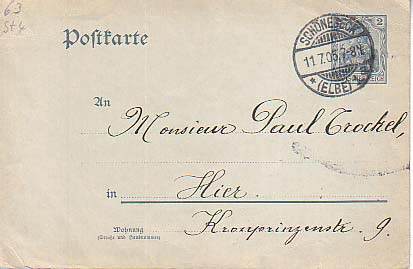 63
St 4
Postkarte
SCHÖNEBECK
11.7.05.7-8N.
* (ELBE)
2
An
Monsieur Paul Trockel,
in Hier.
Wohnung
(Straße und Hausnummer)
Kronprinzenstr. 9.